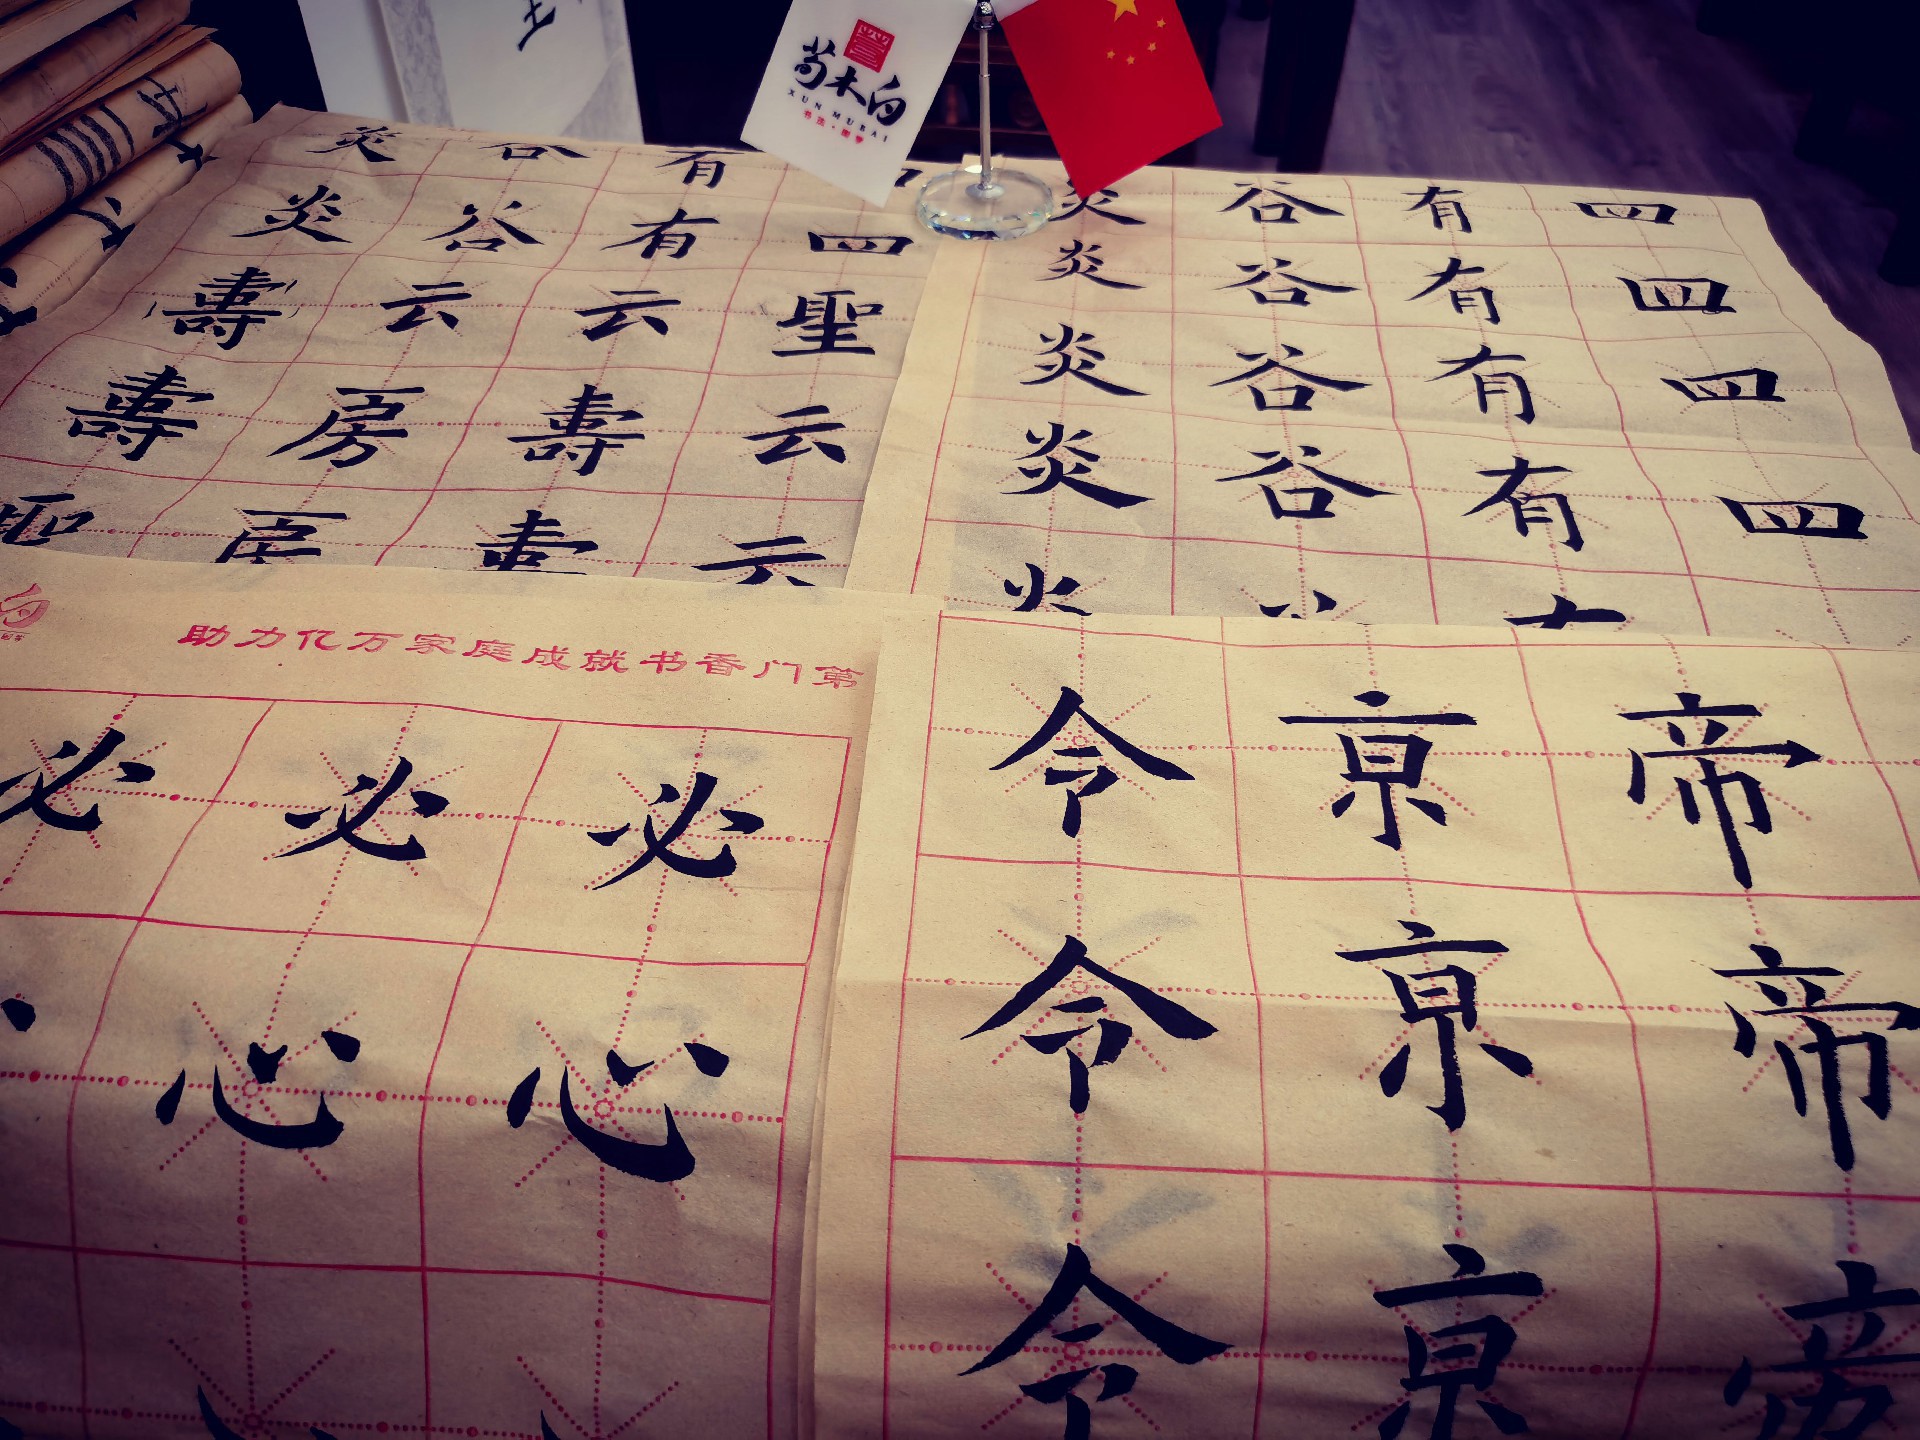 荀木白
XUN MUBAI
炎 谷 有
炎 谷 有 四
壽 云 云 聖
壽 房 壽 云
聖 臣 壽 云
炎 谷 有 四
炎 谷 有 四
炎 谷 有 四
炎 谷 有 四
助力亿万家庭成就书香门第
必 必 必
心 心
令 京 帝
令 京 帝
令 京 帝